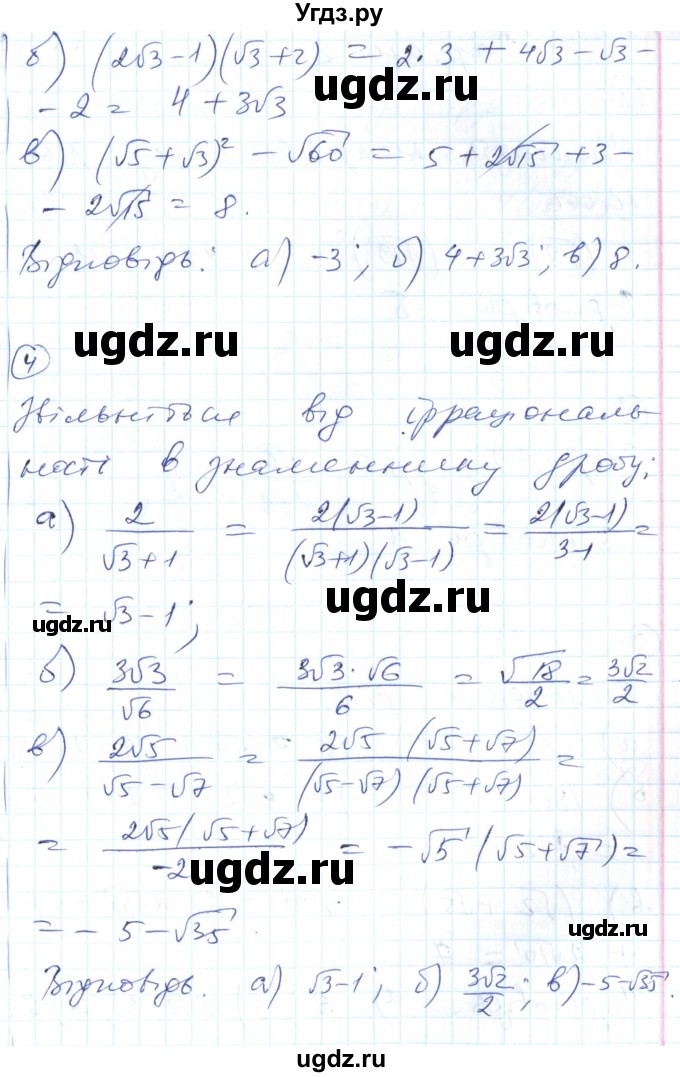 Угдз.ру
б) (2√3-1)(√3+2) = 2·3 + 4√3-√3-
ugdz.ru
- 2 = 4 + 3√3
в) (√5+√3)² - √60 = 5 + 2√15 + 3 -
- 2√15 = 8.
Відповідь: а) -3; б) 4+3√3; в) 8.
ugdz.ru ugdz.ru
4
Звільніться від ірраціональ
ності в знаменнику дробу:
а) 2/(√3+1) = 2(√3-1)/((√3+1)(√3-1)) = 2(√3-1)/(3-1) =
ugdz.ru ugdz.ru
= √3-1;
б) 3√3/√6 = 3√3·√6/6 = √18/2 = 3√2/2
в) 2√5/(√5-√7) = 2√5 (√5+√7)/((√5-√7)(√5+√7)) =
= 2√5(√5+√7)/-2 = -√5(√5+√7) =
ugdz.ru
ugdz.ru
= - 5-√35
Відповідь. а) √3-1; б) 3√2/2; в) -5-√35.
ugdz.ru